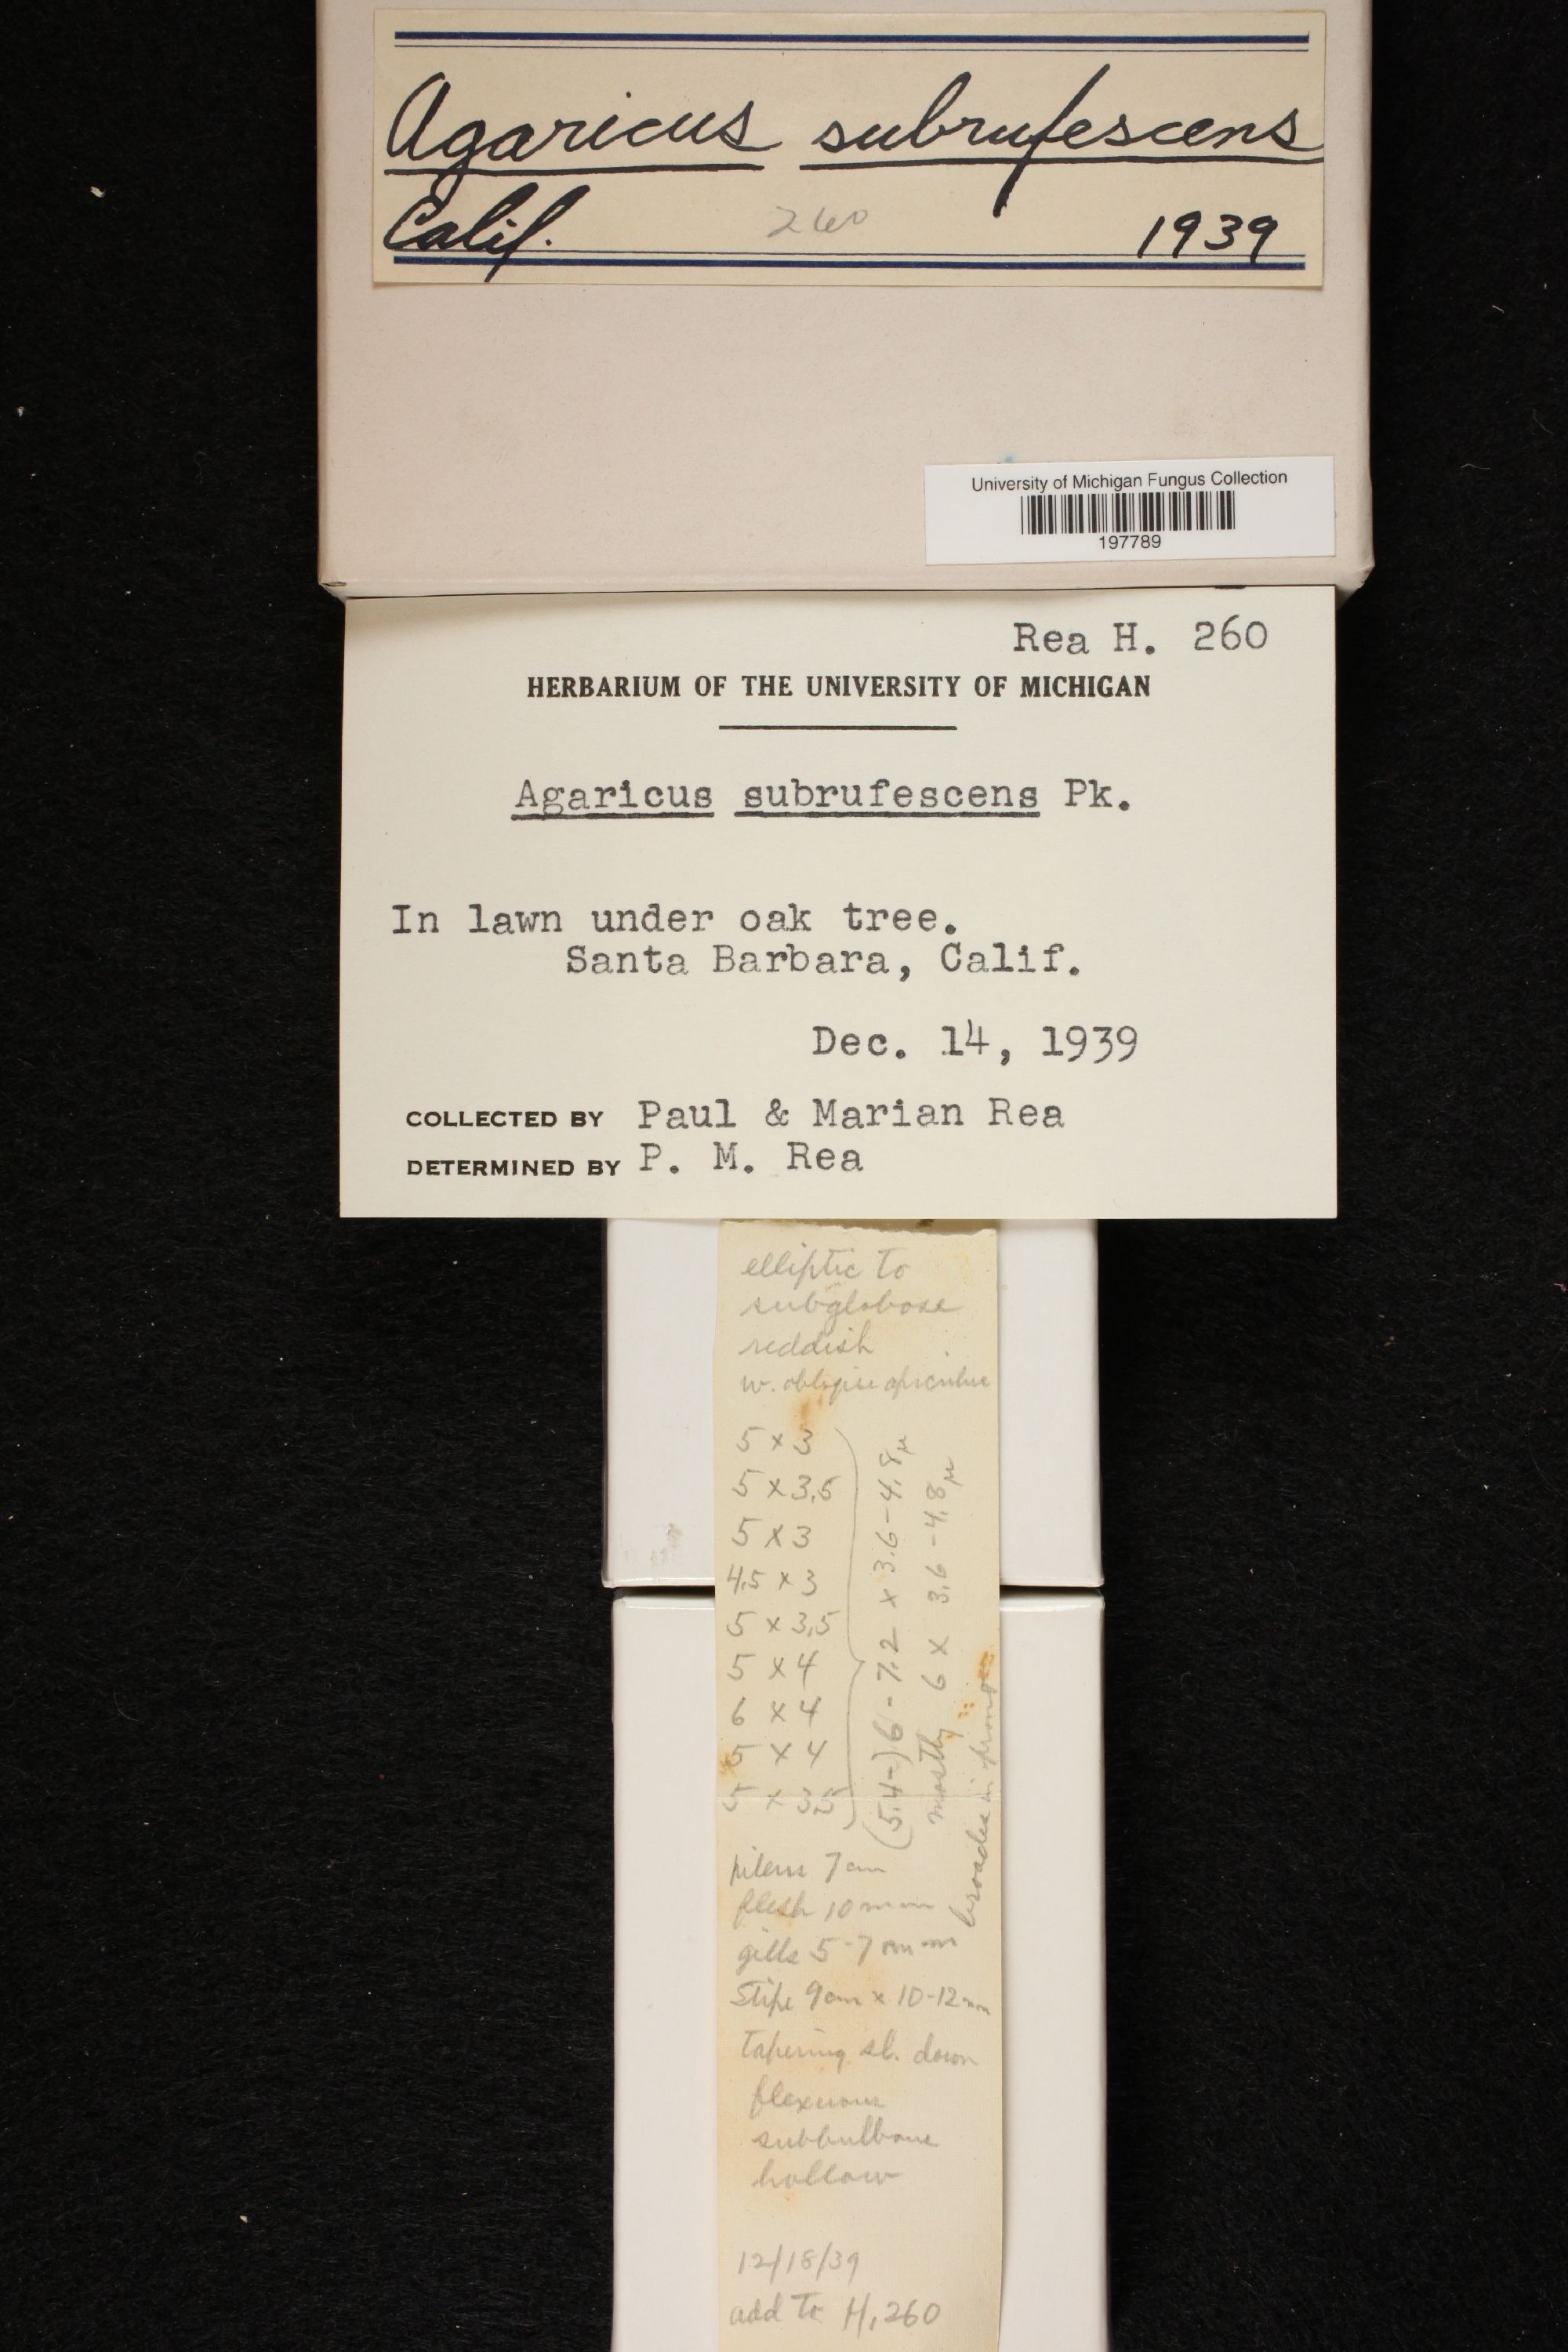 Agaricus subrufescens
Calif. 260 1939
University of Michigan Fungus Collection
197789
Rea H. 260
HERBARIUM OF THE UNIVERSITY OF MICHIGAN
Agaricus subrufescens Pk.
In lawn under oak tree.
Santa Barbara, Calif.
Dec. 14, 1939
COLLECTED BY Paul & Marian Rea
DETERMINED BY P. M. Rea
elliptic to
subglobose
reddish
w. oblique apiculus
5 x 3
5 x 3.5
5 x 3
4.5 x 3
5 x 3.5
5 x 4
6 x 4
5 x 4
5 x 3.5
(5.4-)6-7.2 x 3.6-4.8µ
mostly 6 x 3.6-4.8µ
broader in
pileus 7 cm
flesh 10 mm
gills 5-7 mm
Stipe 9 cm x 10-12 mm
tapering sl. down
flexuous
subbulbous
hollow
12/18/39
add to H.260